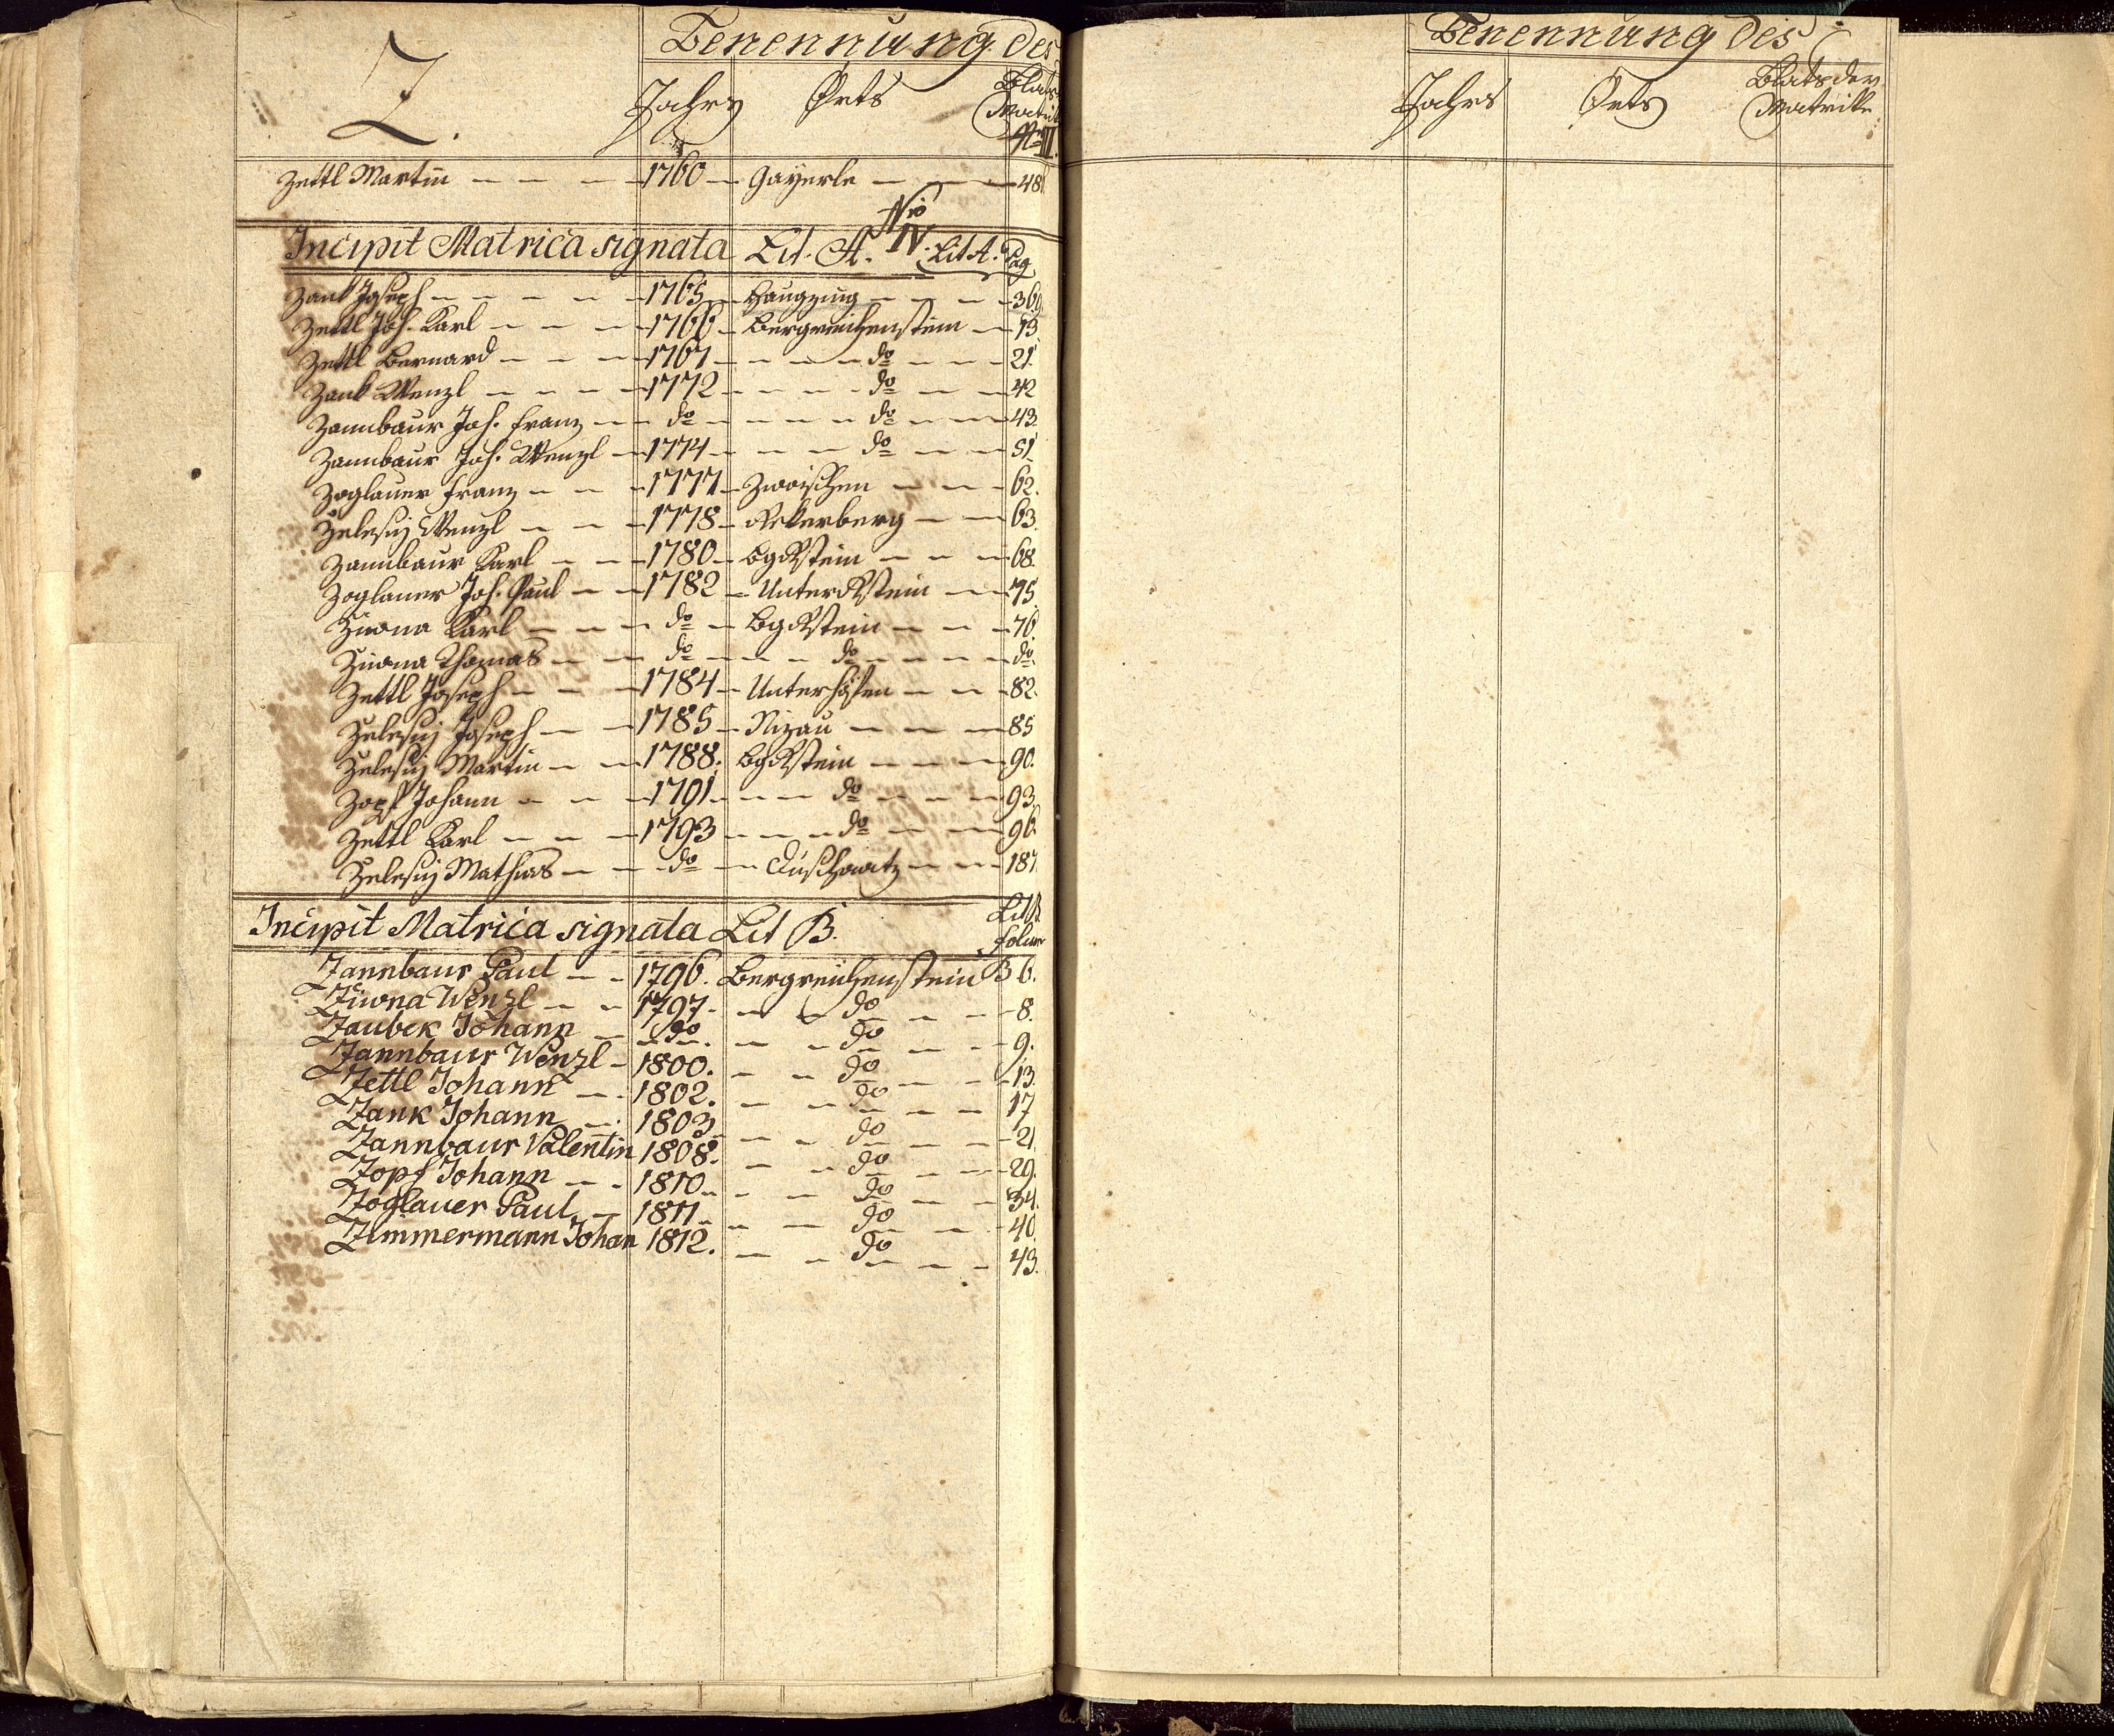 Z.
Benennung des
Jahrs Orts Blats Matrik
Nro III.
Zettl Martin 1760 Gayerle 48
Nro IV.
Incipit Matrica signata Lit. A. Lit A. Pag
Zank Joseph 1765 Haugzing 360
Zettl Joh. Karl 1766 Bergreichenstein 13
Zettl Bernard 1767 do 21.
Zank Wenzl 1772 do 42
Zannbaur Joh. Franz do do 43.
Zannbaur Joh. Wenzl 1774 do 51.
Zoglauer Franz 1777 Zwoischen 62.
Zelesny Wenzl 1778 Rekerberg 63.
Zannbaur Karl 1780 BgRstein 68.
Zoglauer Joh. Paul 1782 UnterRstein 75.
Ziwna Karl do BgRstein 76.
Ziwna Thomas do do do.
Zettl Joseph 1784 Unterhöfen 82.
Zelesny Joseph 1785 Nizau 85
Zelesny Martin 1788. BgRstein 90.
Zopf Johann 1791 do 93.
Zettl Karl 1793 do 96.
Zelesny Mathias do Duschowitz 187.
Incipit Matrica signata Lit B. Lit B folium
Zannbaur Paul 1796. Bergreichenstein B 6.
Ziwna Wenzl 1797. do 8.
Zaubek Johann do. do 9.
Zannbaur Wenzl 1800. do 13.
Zettl Johann 1802. do 17
Zank Johann 1803 do 21.
Zannbaur Valentin 1808. do 29.
Zopf Johann 1810 do 34.
Zoglauer Paul 1811 do 40.
Zimmermann Johan 1812. do 43.
Benennung des
Jahrs Orts Blats der Matrike